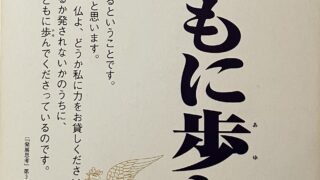 もに歩
あゆ
るということです。
と思います。
仏よ、どうか私に力をお貸しくださ
るか発されないかのうちに、
ともに歩んでくださっているのです。
『発展思考』第